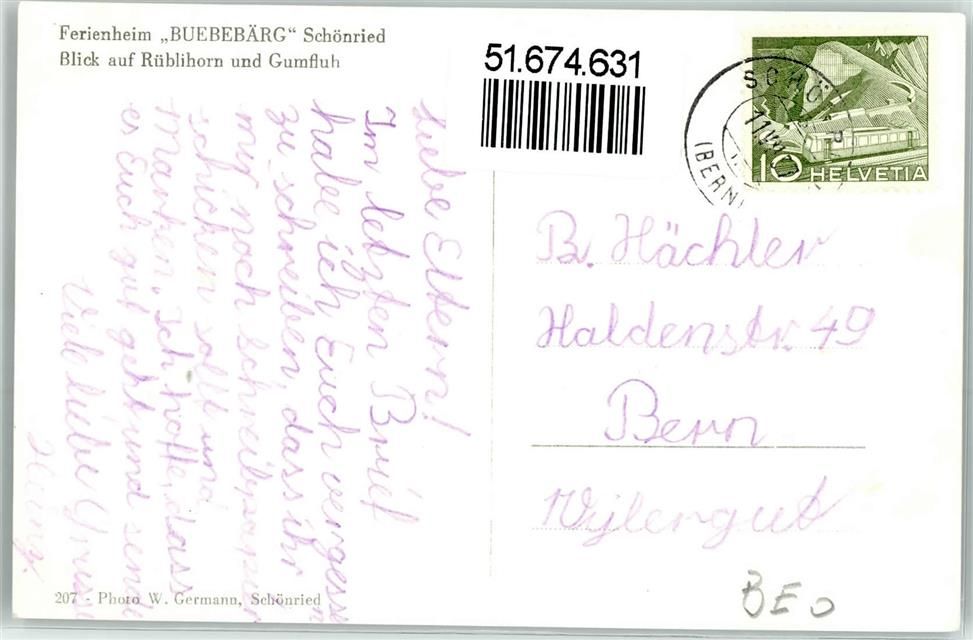 Ferienheim „BUEBEBÄRG“ Schönried
Blick auf Rüblihorn und Gumfluh
51.674.631
SCHÖ
(BERN)
10 HELVETIA
Liebe Eltern!
Im letzten Brief
habe ich Euch vergessen
zu schreiben, dass ihr
mir noch Schreibpapier
schicken sollt und
Marken. Ich hoffe, dass
es Euch gut geht und sende
Viele liebe Grüsse
Heinz.
B. Hächler
Haldenstr. 49
Bern
Wylergut
207 - Photo W. Germann, Schönried
BEO